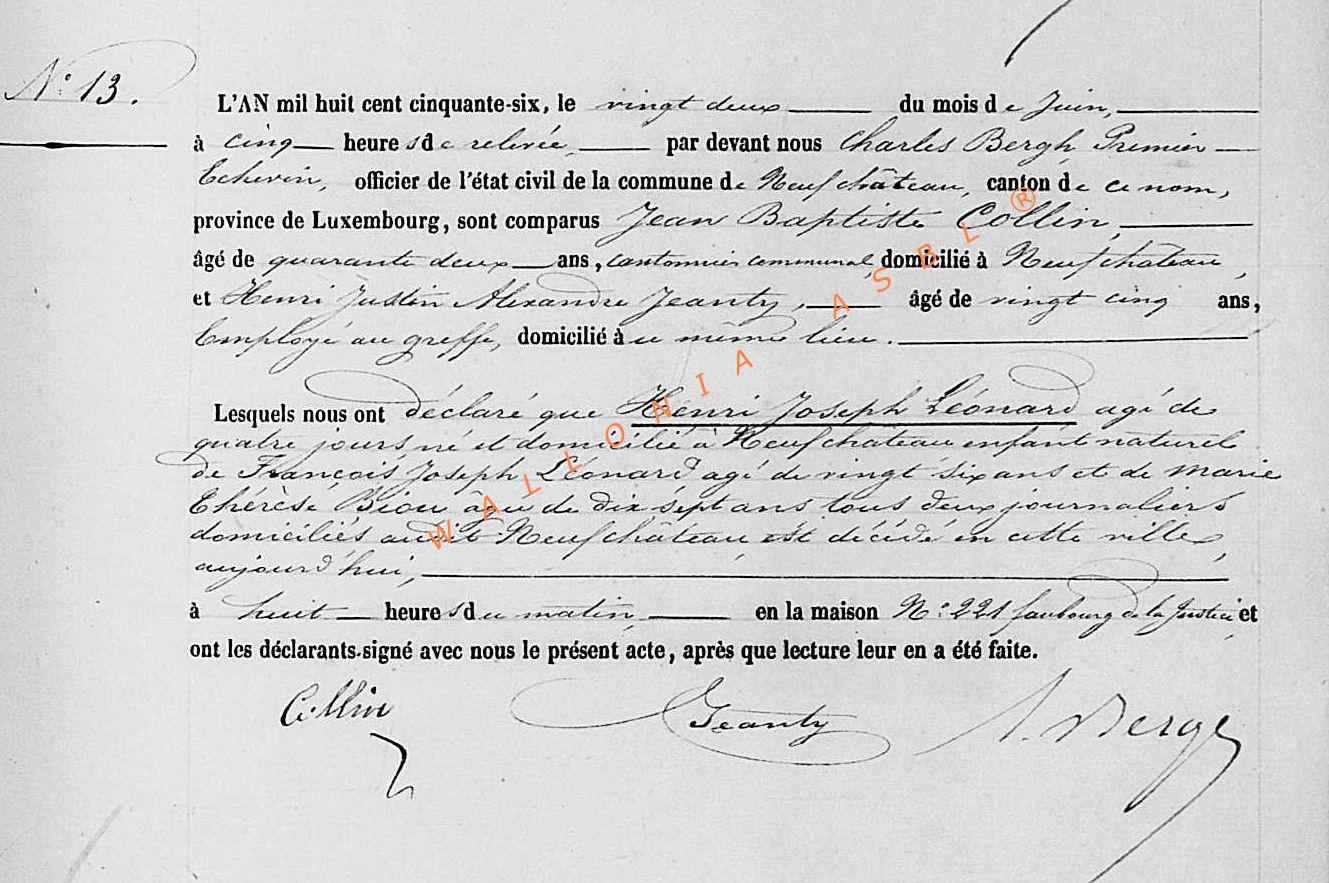 N° 13.
L'AN mil huit cent cinquante-six, le vingt deux du mois de Juin,
à cinq heures de relevée, par devant nous Charles Bergh, Premier
Echevin, officier de l'état civil de la commune de Neufchâteau, canton de ce nom,
province de Luxembourg, sont comparus Jean Baptiste Collin,
âgé de quarante deux ans, cantonnier communal, domicilié à Neufchâteau,
et Henri Justin Alexandre Jeanty, âgé de vingt cinq ans,
Employé au greffe, domicilié au même lieu.
Lesquels nous ont déclaré que Henri Joseph Léonard agé de
quatre jours né et domicilié à Neufchâteau enfant naturel
de François Joseph Léonard agé de vingt six ans et de Marie
Thérèse Biou âgée de dix sept ans tous deux journaliers
domiciliés audit Neufchâteau, est décédé en cette ville,
aujourd'hui,
à huit heures du matin, en la maison N° 221 faubourg de la Justice, et
ont les déclarants signé avec nous le présent acte, après que lecture leur en a été faite.
Collin Jeanty Bergh
WALLONIA ASBL ®